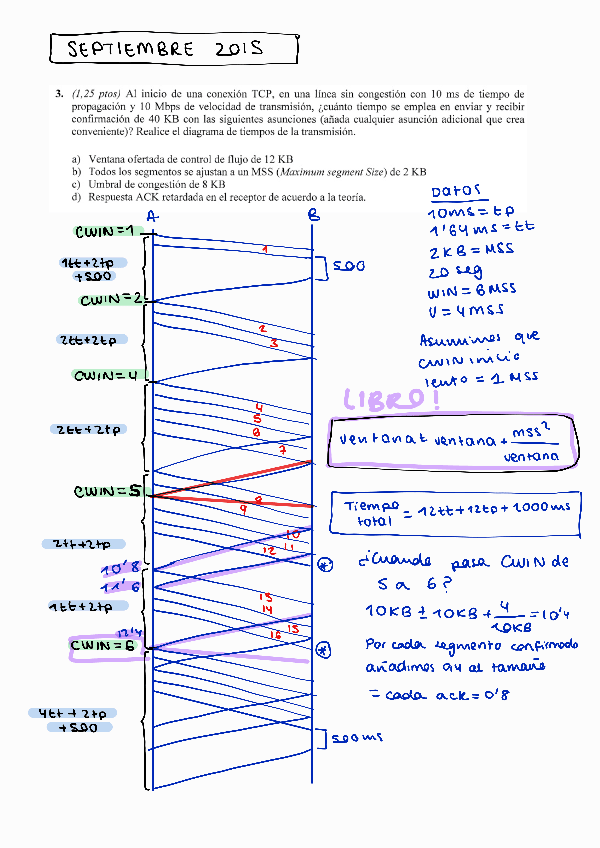 SEPTIEMBRE 2015
3. (1,25 ptos) Al inicio de una conexión TCP, en una línea sin congestión con 10 ms de tiempo de
propagación y 10 Mbps de velocidad de transmisión, ¿cuánto tiempo se emplea en enviar y recibir
confirmación de 40 KB con las siguientes asunciones (añada cualquier asunción adicional que crea
conveniente)? Realice el diagrama de tiempos de la transmisión.
a) Ventana ofertada de control de flujo de 12 KB
b) Todos los segmentos se ajustan a un MSS (Maximum segment Size) de 2 KB
c) Umbral de congestión de 8 KB
d) Respuesta ACK retardada en el receptor de acuerdo a la teoría.
DATOS
10ms = tp
1'64ms = tt
2KB = MSS
20 seg
WIN = 6MSS
U = 4MSS
Asumimos que
CWIN inicio
lento = 1 MSS
LIBRO!
ventana t ventana + MSS²
ventana
Tiempo total = 12tt + 12tp + 1000ms
¿Cuando pasa CWIN de
5 a 6?
10KB ± 10KB + 4
10KB
= 10'4
Por cada segmento confirmado
añadimos 0,4 al tamaño
= cada ack = 0'8
A
B
CWIN=1
1
1tt+2tp
+500
500
CWIN=2
2
2tt+2tp
3
CWIN=4
4
5
2tt+2tp
6
7
CWIN=5
8
9
10
2tt+2tp
12
11
10'8
11'6
13
1tt+2tp
14
15
12'4
16
CWIN=6
4tt + 2tp
+500
500ms